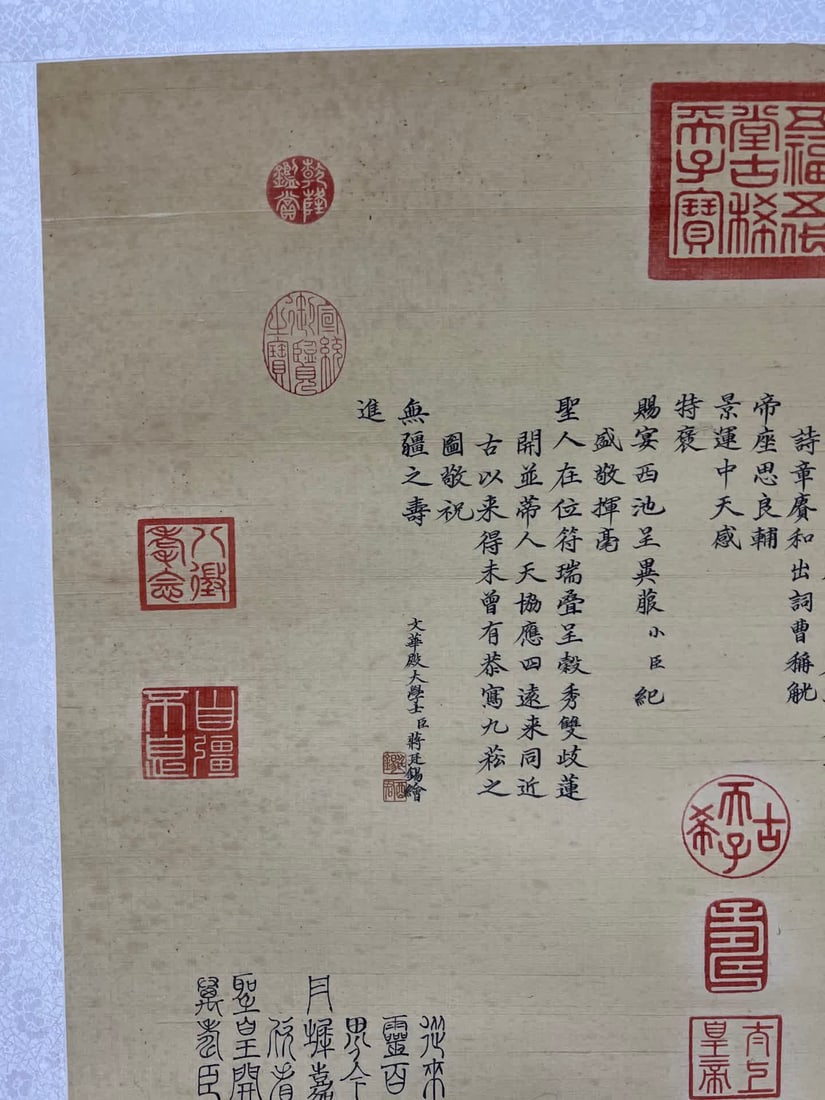 五福五代
堂古稀
天子寶
詩章賡和出詞曹稱觥
帝座思良輔
景運中天感
特褒
賜宴西池呈異服小臣紀
盛敬揮毫
聖人在位符瑞疊呈穀秀雙歧蓮
開並蒂人天協應四遠来同近
古以来得未曾有恭寫九菘之
圖敬祝
無疆之壽
進
文華殿大學士臣蔣廷錫繪
乾隆
鑑賞
宣統
御覽
之寶
八徵
耄念
自彊
不息
古希天子
壽
太上
皇帝
從來
靈百
聖皇開